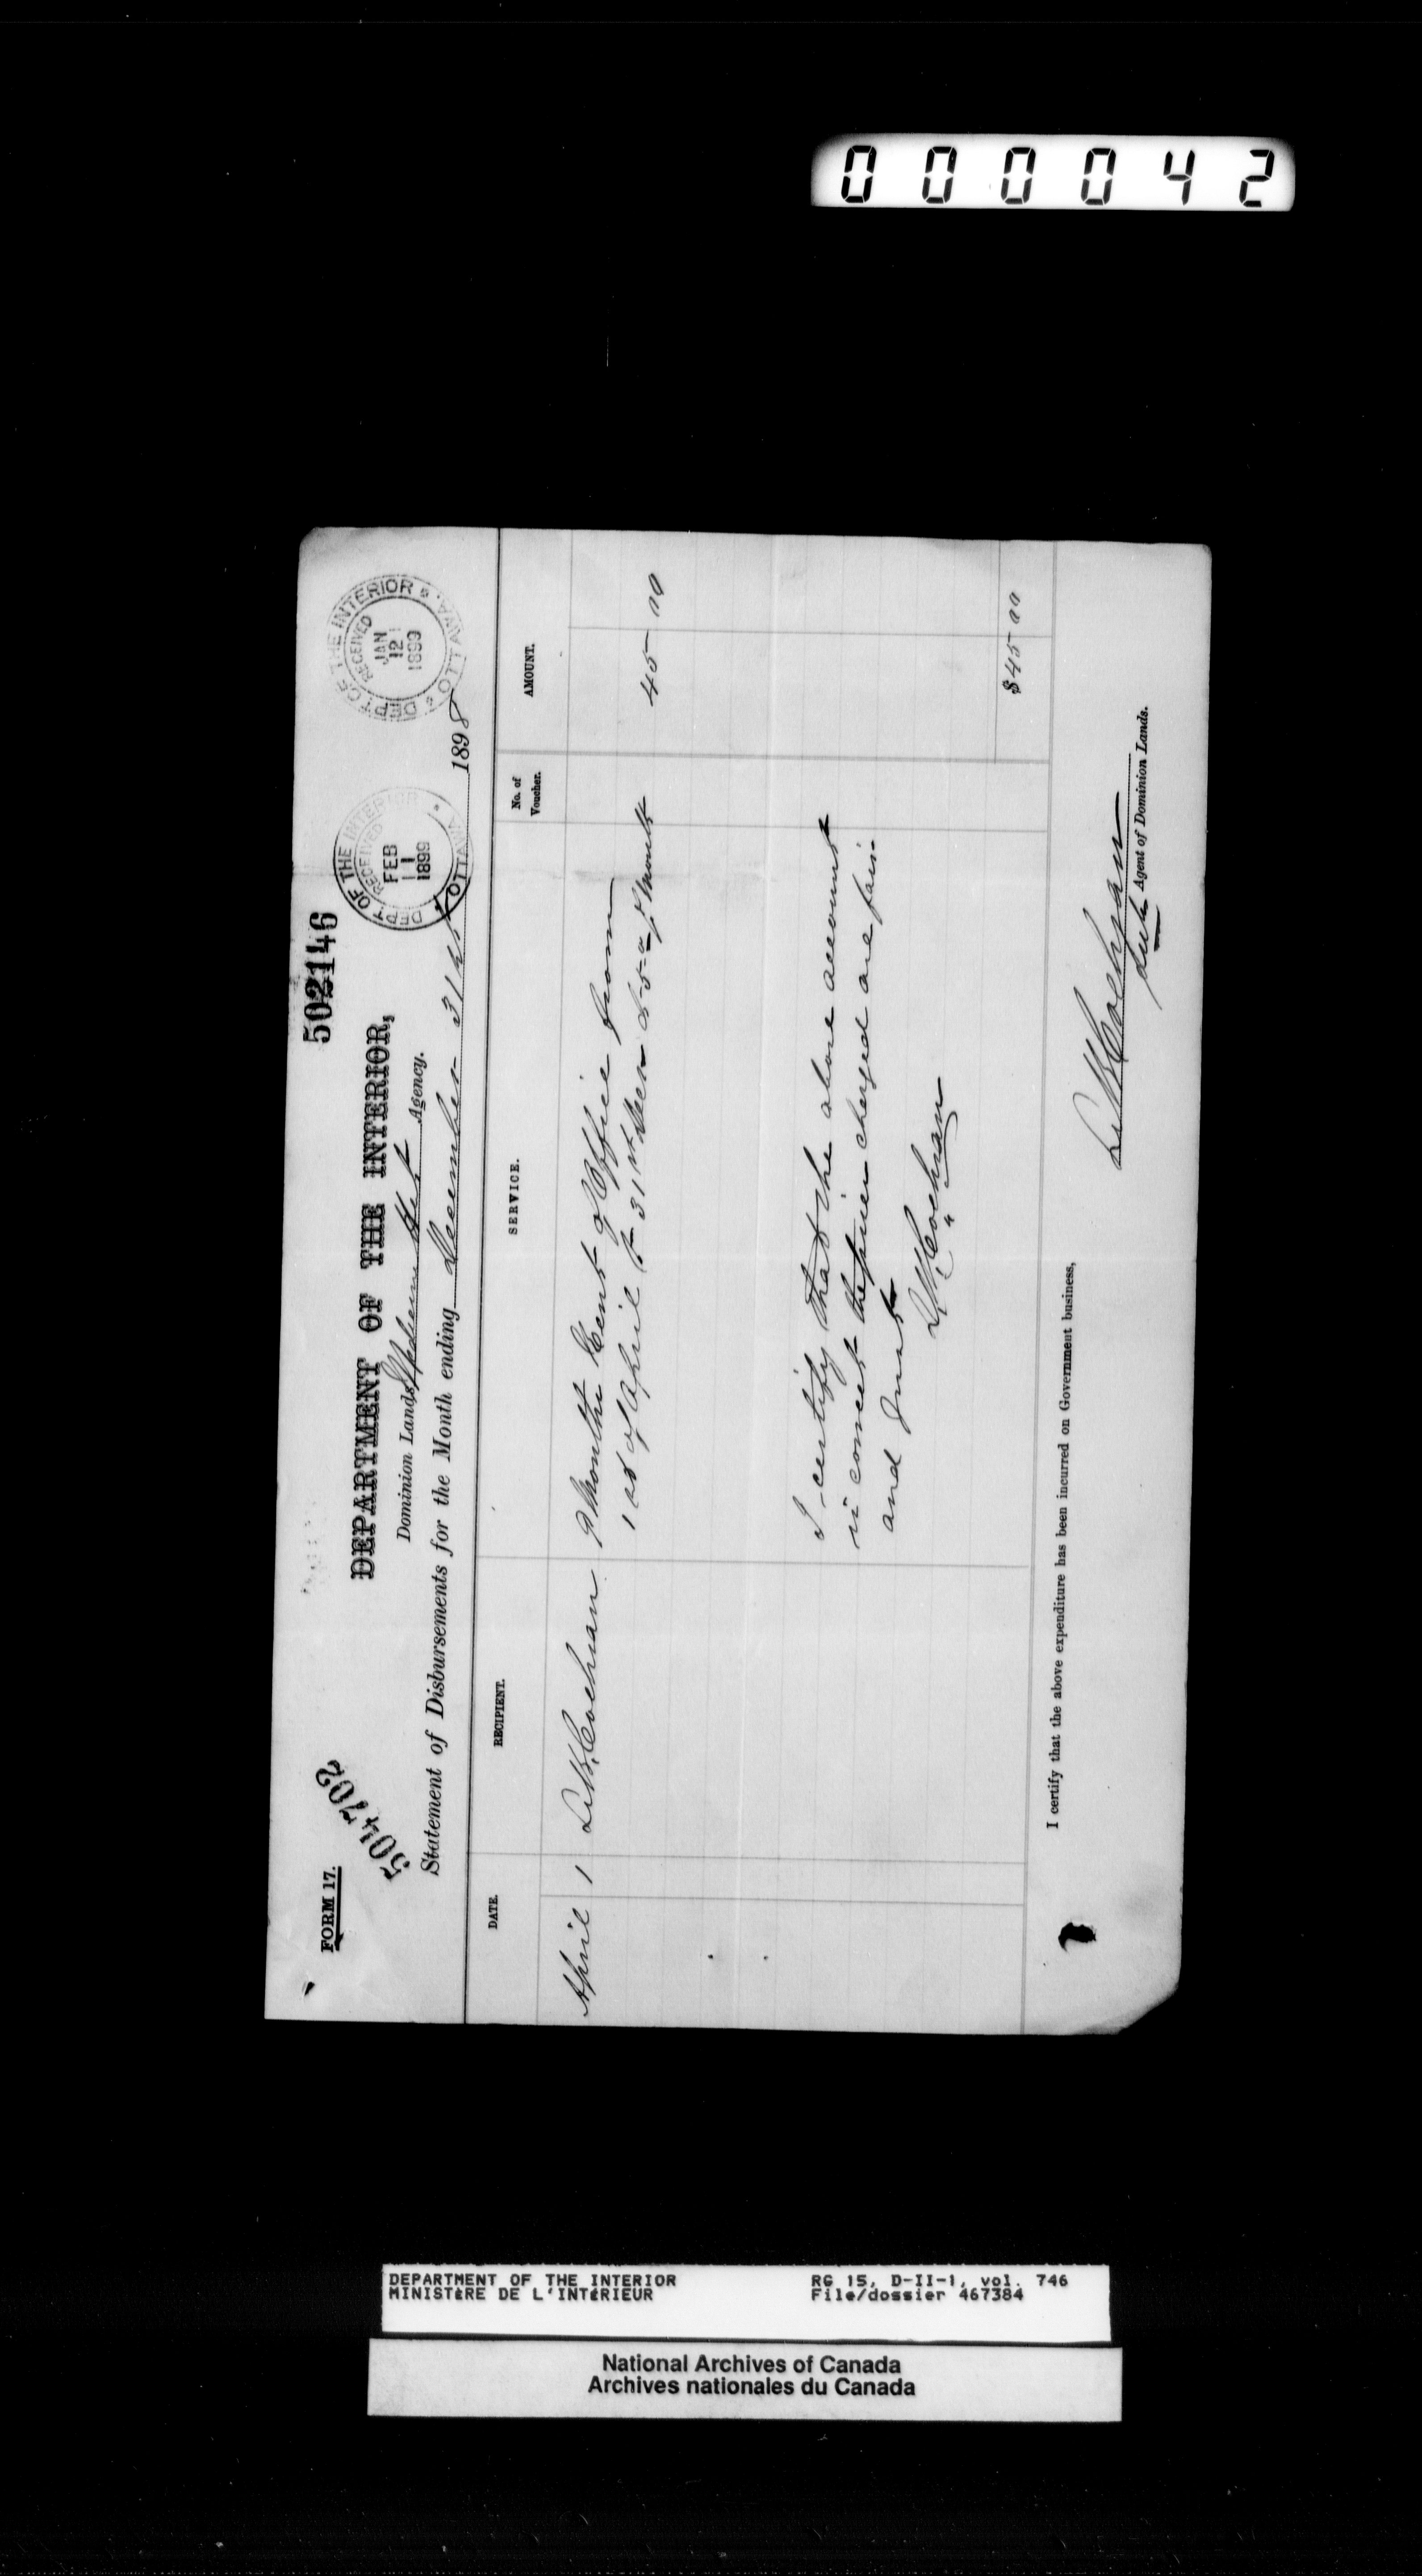 000042
FORM 17.
504702
502146
DEPT OF THE INTERIOR
RECEIVED
FEB
11
1899
OTTAWA
DEPT OF THE INTERIOR
RECEIVED
JAN
12
1899
OTTAWA
DEPARTMENT OF THE INTERIOR,
Dominion Lands Medicine Hat Agency.
Statement of Disbursements for the Month ending December 31st 1898
DATE. RECIPIENT. SERVICE. No. of Voucher. AMOUNT.
April 1 L.B. Cochran 9 Months Rent of Office from
1st of April to 31st Decr @ 5 00 p Month 45 00
I certify that the above account
is correct the prices charged are fair
and Just
L.B. Cochran
$45 00
I certify that the above expenditure has been incurred on Government business,
L.B. Cochran
Sub Agent of Dominion Lands.
DEPARTMENT OF THE INTERIOR RG 15, D-II-1, vol. 746
MINISTÈRE DE L'INTÉRIEUR File/dossier 467384
National Archives of Canada
Archives nationales du Canada